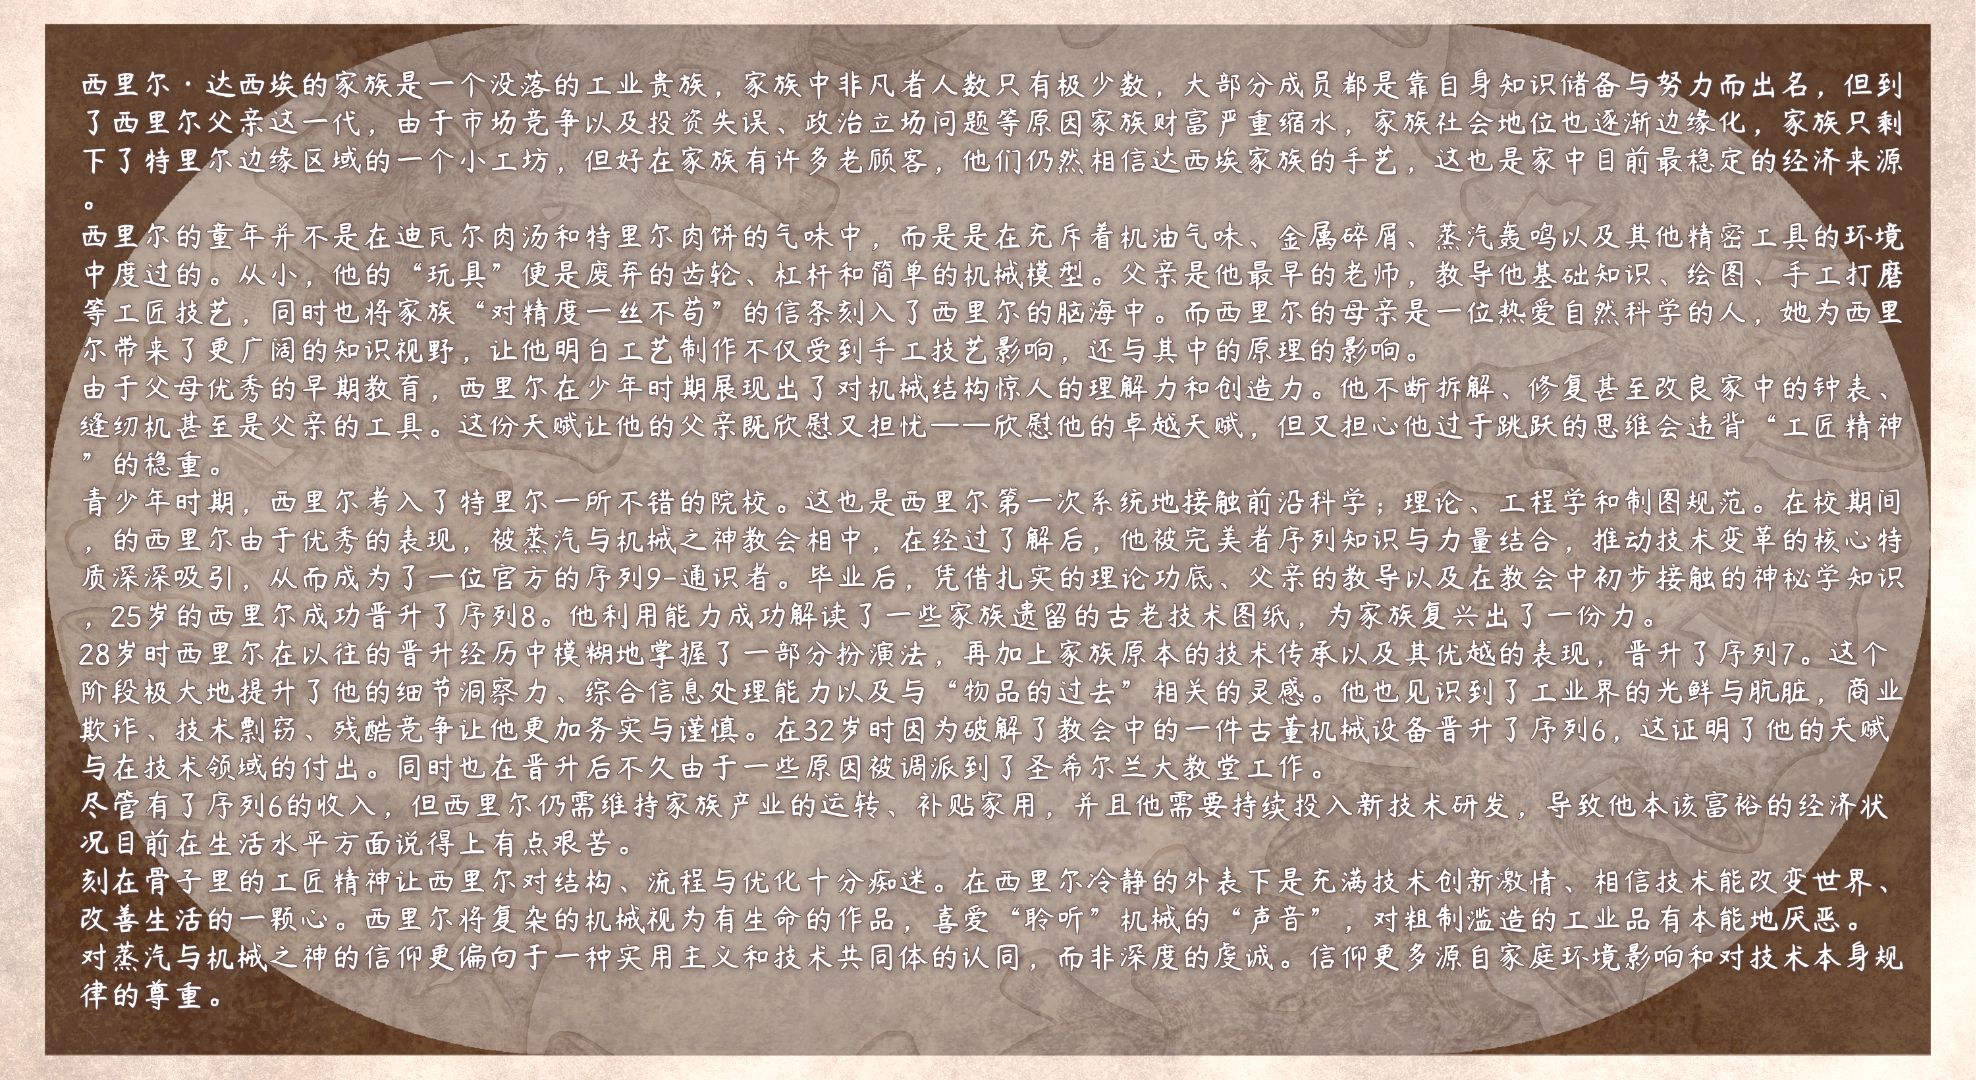 西里尔·达西埃的家族是一个没落的工业贵族，家族中非凡者人数只有极少数，大部分成员都是靠自身知识储备与努力而出名，但到
了西里尔父亲这一代，由于市场竞争以及投资失误、政治立场问题等原因家族财富严重缩水，家族社会地位也逐渐边缘化，家族只剩
下了特里尔边缘区域的一个小工坊，但好在家族有许多老顾客，他们仍然相信达西埃家族的手艺，这也是家中目前最稳定的经济来源
。
西里尔的童年并不是在迪瓦尔肉汤和特里尔肉饼的气味中，而是是在充斥着机油气味、金属碎屑、蒸汽轰鸣以及其他精密工具的环境
中度过的。从小，他的“玩具”便是废弃的齿轮、杠杆和简单的机械模型。父亲是他最早的老师，教导他基础知识、绘图、手工打磨
等工匠技艺，同时也将家族“对精度一丝不苟”的信条刻入了西里尔的脑海中。而西里尔的母亲是一位热爱自然科学的人，她为西里
尔带来了更广阔的知识视野，让他明白工艺制作不仅受到手工技艺影响，还与其中的原理的影响。
由于父母优秀的早期教育，西里尔在少年时期展现出了对机械结构惊人的理解力和创造力。他不断拆解、修复甚至改良家中的钟表、
缝纫机甚至是父亲的工具。这份天赋让他的父亲既欣慰又担忧——欣慰他的卓越天赋，但又担心他过于跳跃的思维会违背“工匠精神
”的稳重。
青少年时期，西里尔考入了特里尔一所不错的院校。这也是西里尔第一次系统地接触前沿科学；理论、工程学和制图规范。在校期间
，的西里尔由于优秀的表现，被蒸汽与机械之神教会相中，在经过了解后，他被完美者序列知识与力量结合，推动技术变革的核心特
质深深吸引，从而成为了一位官方的序列9-通识者。毕业后，凭借扎实的理论功底、父亲的教导以及在教会中初步接触的神秘学知识
，25岁的西里尔成功晋升了序列8。他利用能力成功解读了一些家族遗留的古老技术图纸，为家族复兴出了一份力。
28岁时西里尔在以往的晋升经历中模糊地掌握了一部分扮演法，再加上家族原本的技术传承以及其优越的表现，晋升了序列7。这个
阶段极大地提升了他的细节洞察力、综合信息处理能力以及与“物品的过去”相关的灵感。他也见识到了工业界的光鲜与肮脏，商业
欺诈、技术剽窃、残酷竞争让他更加务实与谨慎。在32岁时因为破解了教会中的一件古董机械设备晋升了序列6，这证明了他的天赋
与在技术领域的付出。同时也在晋升后不久由于一些原因被调派到了圣希尔兰大教堂工作。
尽管有了序列6的收入，但西里尔仍需维持家族产业的运转、补贴家用，并且他需要持续投入新技术研发，导致他本该富裕的经济状
况目前在生活水平方面说得上有点艰苦。
刻在骨子里的工匠精神让西里尔对结构、流程与优化十分痴迷。在西里尔冷静的外表下是充满技术创新激情、相信技术能改变世界、
改善生活的一颗心。西里尔将复杂的机械视为有生命的作品，喜爱“聆听”机械的“声音”，对粗制滥造的工业品有本能地厌恶。
对蒸汽与机械之神的信仰更偏向于一种实用主义和技术共同体的认同，而非深度的虔诚。信仰更多源自家庭环境影响和对技术本身规
律的尊重。